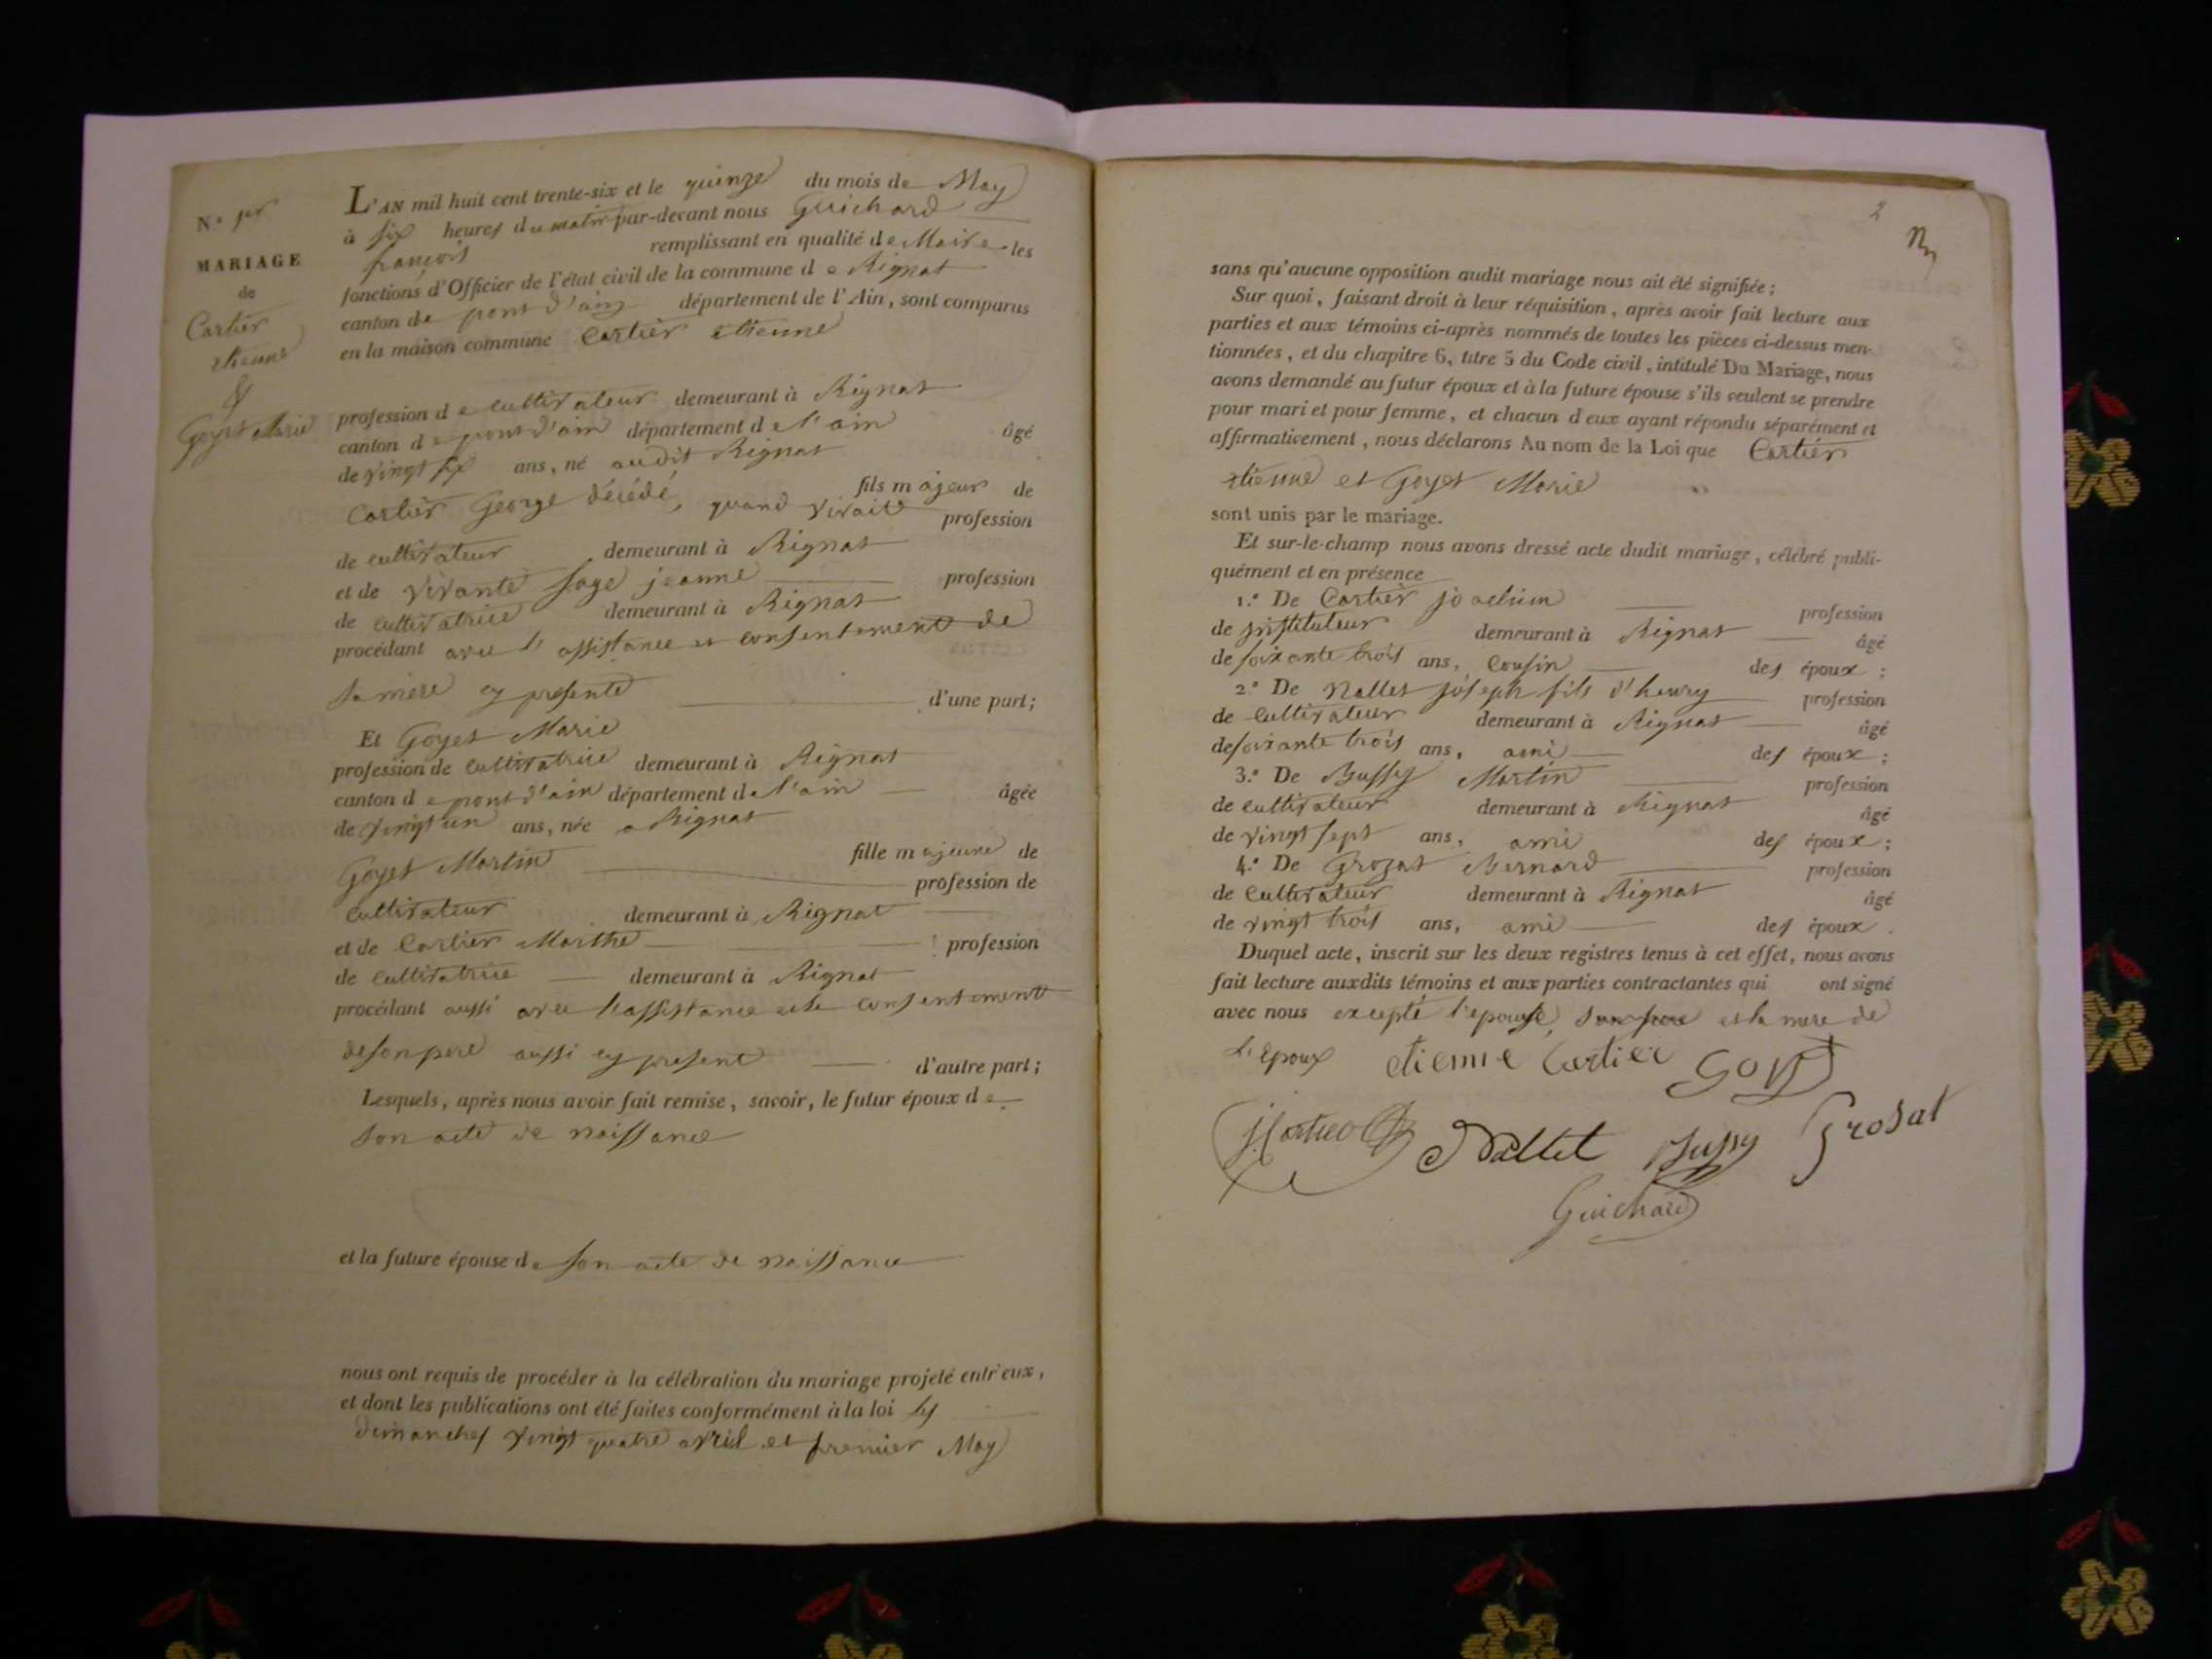 N.º 1er
MARIAGE
de
Cartier
etienne
&
Goyet Marie
L'AN mil huit cent trente-six et le quinze du mois de May
à six heures du matin par-devant nous Guichard
françois remplissant en qualité de Maire les
fonctions d'Officier de l'état civil de la commune de Rignat
canton de pont d'ain département de l'Ain, sont comparus
en la maison commune Cartier etienne
profession de cultivateur demeurant à Rignat
canton de pont d'ain département de l'ain âgé
de vingt six ans, né audit Rignat
fils majeur de
Cartier George décédé, quand vivait profession
de cultivateur demeurant à Rignat
et de vivante sage jeanne profession
de cultivatrice demeurant à Rignat
procédant avec l'assistance et consentement de
sa mère cy presente d'une part;
Et Goyet Marie
profession de cultivatrice demeurant à Rignat
canton de pont d'ain département de l'ain âgée
de vingt un ans, née a Rignat
fille majeure de
Goyet Martin profession de
cultivateur demeurant à Rignat
et de Cartier Marthe profession
de cultivatrice demeurant à Rignat
procédant aussi avec l'assistance et le consentement
de son pere aussi cy present d'autre part;
Lesquels, après nous avoir fait remise, savoir, le futur époux de
son acte de naissance
et la future épouse de son acte de naissance
nous ont requis de procéder à la célébration du mariage projeté entr'eux,
et dont les publications ont été faites conformément à la loi les
dimanches vingt quatre avril et premier May
2
sans qu'aucune opposition audit mariage nous ait été signifiée;
Sur quoi, faisant droit à leur réquisition, après avoir fait lecture aux
parties et aux témoins ci-après nommés de toutes les pièces ci-dessus men-
tionnées, et du chapitre 6, titre 5 du Code civil, intitulé Du Mariage, nous
avons demandé au futur époux et à la future épouse s'ils veulent se prendre
pour mari et pour femme, et chacun d'eux ayant répondu séparément et
affirmativement, nous déclarons Au nom de la Loi que Cartier
etienne et Goyet Marie
sont unis par le mariage.
Et sur-le-champ nous avons dressé acte dudit mariage, célébré publi-
quément et en présence
1.º De Cartier joachim profession
de jnstituteur demeurant à Rignat âgé
de soixante trois ans, cousin des époux;
2.º De Nallet joseph fils d'henry profession
de cultivateur demeurant à Rignat âgé
de soixante trois ans, ami des époux;
3.º De Bussy Martin profession
de cultivateur demeurant à Rignat âgé
de vingt sept ans, ami des époux;
4.º De Grozat Bernard profession
de cultivateur demeurant à Rignat âgé
de vingt trois ans, ami des époux.
Duquel acte, inscrit sur les deux registres tenus à cet effet, nous avons
fait lecture auxdits témoins et aux parties contractantes qui ont signé
avec nous excepté l'epouse, son pere et la mere de
l'Epoux etienne Cartier Goyet
j. Cartier Nallet Bussy Grosat
Guichard